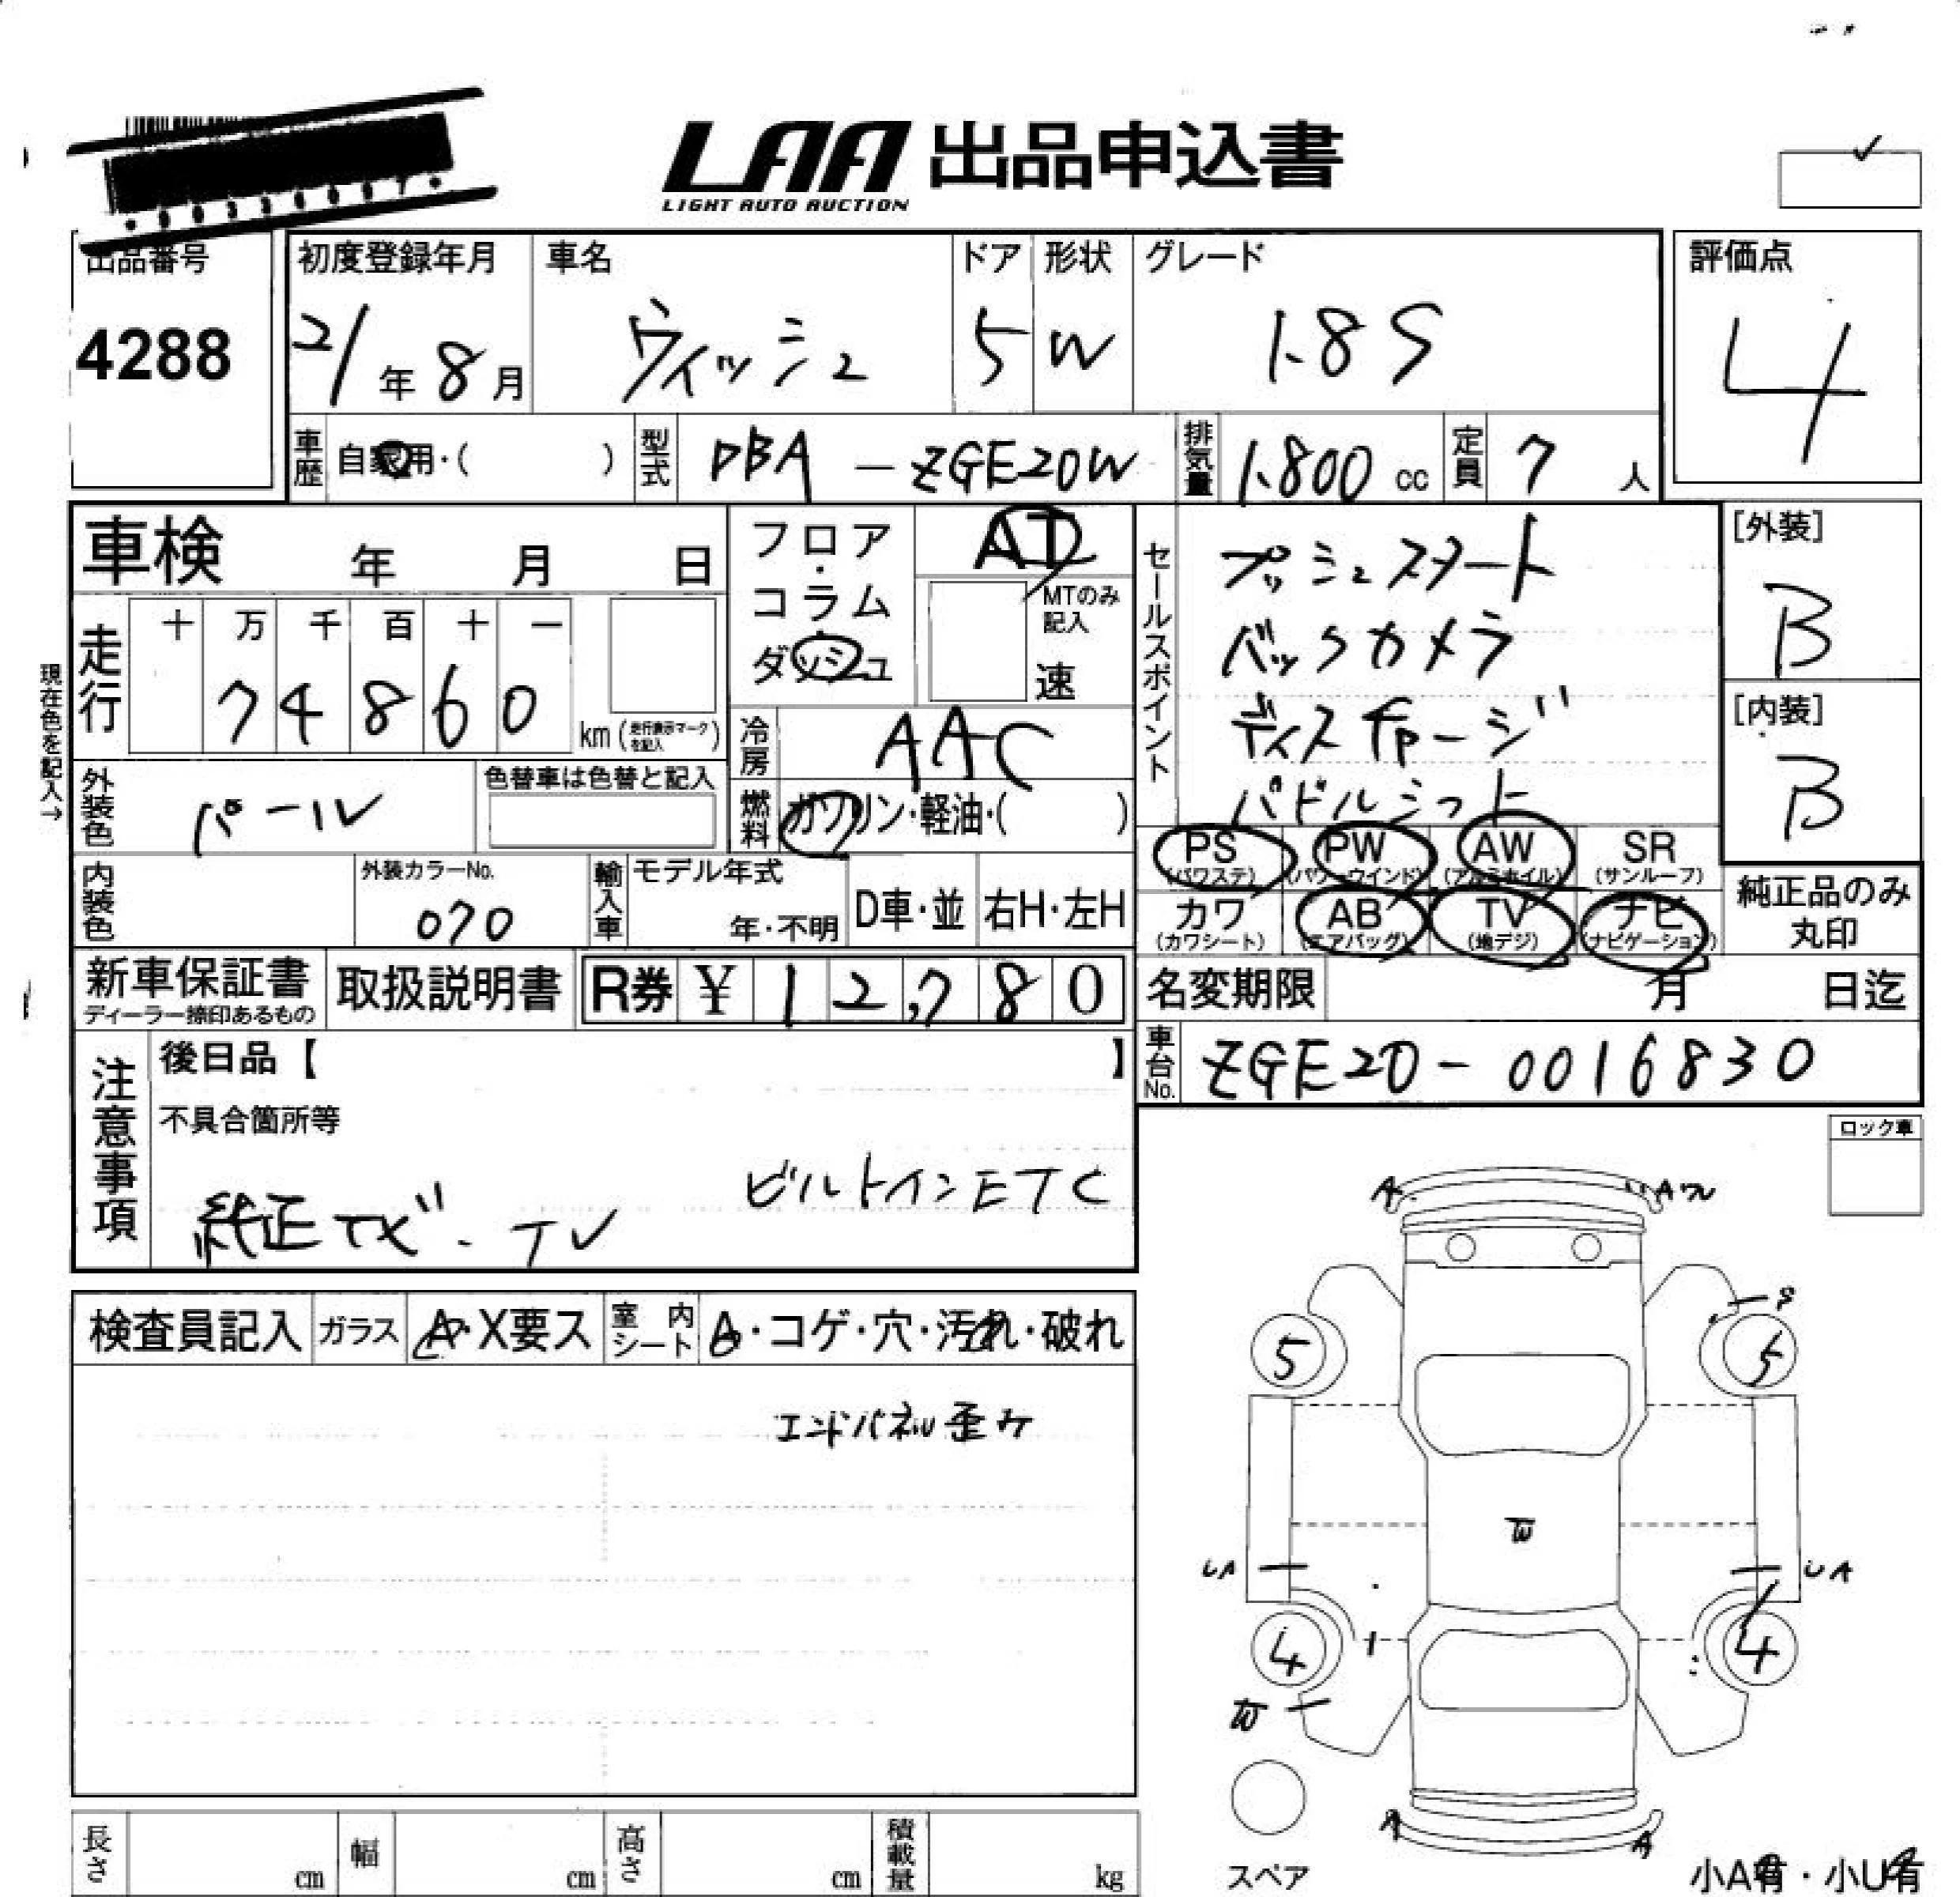 LAA 出品申込書
LIGHT AUTO AUCTION
出品番号
4288
初度登録年月
21年 8月
車名
ウィッシュ
ドア
5
形状
W
グレード
1.8S
評価点
4
車歴 自家用・( )
型式 DBA - ZGE20W
排気量 1.800 cc
定員 7 人
車検 年 月 日
フロア・コラム・ダッシュ
AT
MTのみ記入
速
セールスポイント
プッシュスタート
バックカメラ
ディスチャージ
パドルシフト
[外装]
B
[内装]
B
現在色を記入→
走行
十 万 千 百 十 一
7 4 8 6 0
km (走行表示マークを記入)
冷房 AAC
燃料 ガソリン・軽油・( )
外装色 パール
色替車は色替と記入
内装色
外装カラーNo.
070
輸入車
モデル年式
年・不明
D車・並
右H・左H
PS (パワステ)
PW (パワーウインド)
AW (アルミホイル)
SR (サンルーフ)
カワ (カワシート)
AB (エアバッグ)
TV (地デジ)
ナビ (ナビゲーション)
純正品のみ丸印
新車保証書
ディーラー捺印あるもの
取扱説明書
R券 ¥ 12,780
名変期限 月 日迄
車台No. ZGE20 - 0016830
注意事項
後日品【 】
不具合箇所等
ビルトインETC
純正ナビ・TV
ロック車
検査員記入
ガラス A・X要ス
室内シート
・コゲ・穴・汚れ・破れ
エンドパネル歪み
A
A
5
5
W
UA
UA
4
4
W
A
A
スペア
小A有・小U有
長さ cm
幅 cm
高さ cm
積載量 kg